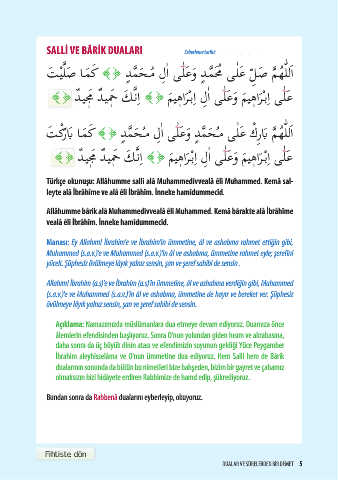 SALLİ VE BÂRİK DUALARI
اَللّٰهُمَّ صَلِّ عَلٰى مُحَمَّدٍ وَعَلٰى اٰلِ مُحَمَّدٍ ﴿﴾ كَمَا صَلَّيْتَ
عَلٰى اِبْرَاهِيمَ وَعَلٰى اٰلِ اِبْرَاهِيمَ ﴿﴾ اِنَّكَ حَمِيدٌ مَجِيدٌ ﴿﴾
اَللّٰهُمَّ بَارِكْ عَلٰى مُحَمَّدٍ وَعَلٰى اٰلِ مُحَمَّدٍ ﴿﴾ كَمَا بَارَكْتَ
عَلٰى اِبْرَاهِيمَ وَعَلٰى اٰلِ اِبْرَاهِيمَ ﴿﴾ اِنَّكَ حَمِيدٌ مَجِيدٌ ﴿﴾
Türkçe okunuşu: Allâhumme salli alâ Muhammedivvealâ âli Muhammed. Kemâ sal-
leyte alâ İbrâhîme ve alâ âli İbrâhîm. İnneke hamîdummecîd.
Allâhumme bârik alâ Muhammedivvealâ âli Muhammed. Kemâ bârakte alâ İbrâhîme
vealâ âli İbrâhîm. İnneke hamîdummecîd.
Manası: Ey Allahım! İbrahim'e ve İbrahim'in ümmetine, âl ve ashabına rahmet ettiğin gibi,
Muhammed (s.a.v.)'e ve Muhammed (s.a.v.)'in âl ve ashabına, ümmetine rahmet eyle; şerefini
yücelt. Şüphesiz övülmeye lâyık yalnız sensin, şan ve şeref sahibi de sensin.
Allahım! İbrahim (a.s)'e ve İbrahim (a.s)'in ümmetine, âl ve ashabına verdiğin gibi, Muhammed
(s.a.v.)'e ve Muhammed (s.a.v.)'in âl ve ashabına, ümmetine de hayır ve bereket ver. Şüphesiz
övülmeye lâyık yalnız sensin, şan ve şeref sahibi de sensin.
Açıklama: Namazımızda müslümanlara dua etmeye devam ediyoruz. Duamıza önce
âlemlerin efendisinden başlıyoruz. Sonra O'nun yolundan giden hısım ve akrabasına,
daha sonra da üç büyük dinin atası ve efendimizin soyunun geldiği Yüce Peygamber
İbrahim aleyhisselâma ve O'nun ümmetine dua ediyoruz. Hem Salli hem de Bârik
dualarının sonunda da bütün bu nimetleri bize bahşeden, bizim bir gayret ve çabamız
olmaksızın bizi hidayete erdiren Rabbimize de hamd edip, şükrediyoruz.
Bundan sonra da Rabbenâ dualarını ezberleyip, okuyoruz.
Fihriste dön
5